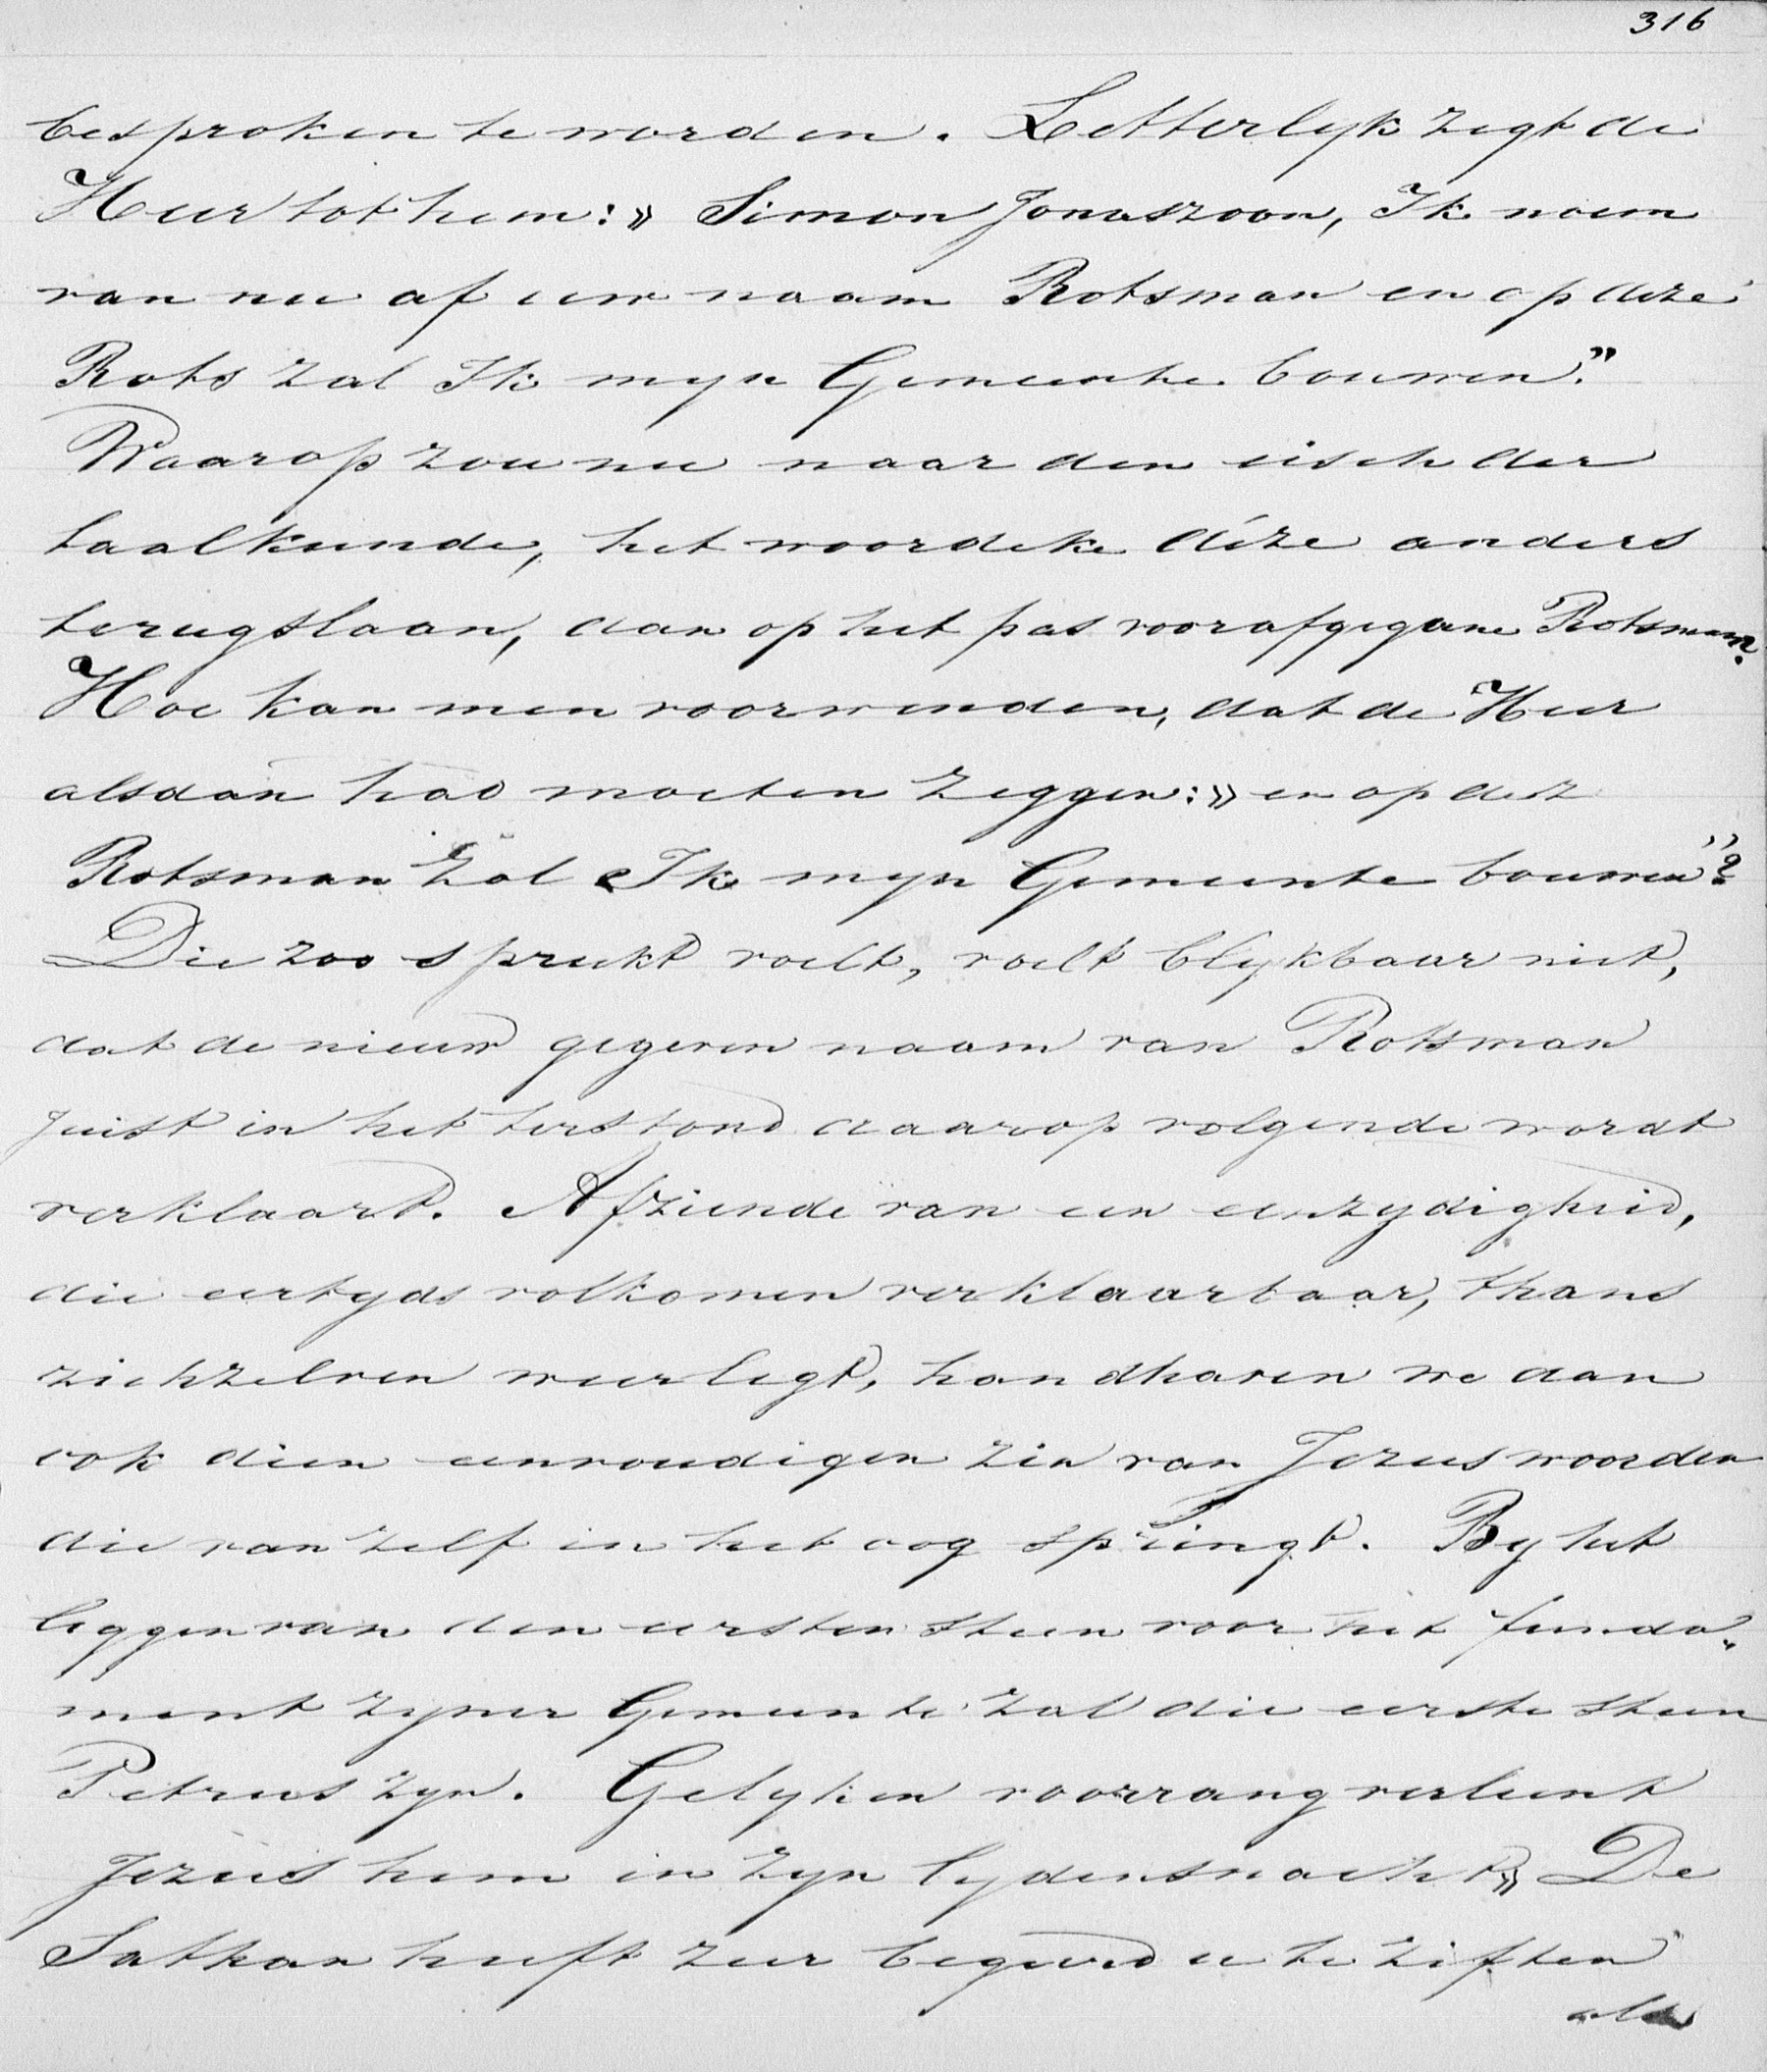 316
besproken te worden. Letterlyk zegt de
Heer tot hem: » Simon Jonaszoon, Ik noem
van nu af uw naam Rotsman en op deze
Rots zal Ik myn Gemeente bouwen."
Waarop zou nu naar den eisch der
taalkunde, het woordeke déze anders
terugslaan, dan op het pas voorafgegane Rotsman?
Hoe kan men voorwenden, dat de Heer
alsdan had moeten zeggen: » en op dez
Rotsman zal Ik myn Gemeente bouwen"?
Die zoo spreekt voelt, voelt blykbaar niet,
dat de nieuw gegeven naam van Rotsman
juist in het terstond daaropvolgende wordt
verklaard. Afziende van een eenzydigheid,
die eertyds volkomen verklaarbaar, thans
zichzelven weerlegt, handhaven we dan
ook dien eenvoudigen zin van Jezus woorden
die van zelf in het oog springt. By het
leggen van den eersten steen voor het funda„
ment zyner Gemeente zal die eerste steen
Petrus zyn. Gelyken voorrang verleent
Jezus hem in zyn lydensnacht » De
Sathan heeft zeer begeerd u te ziften
als